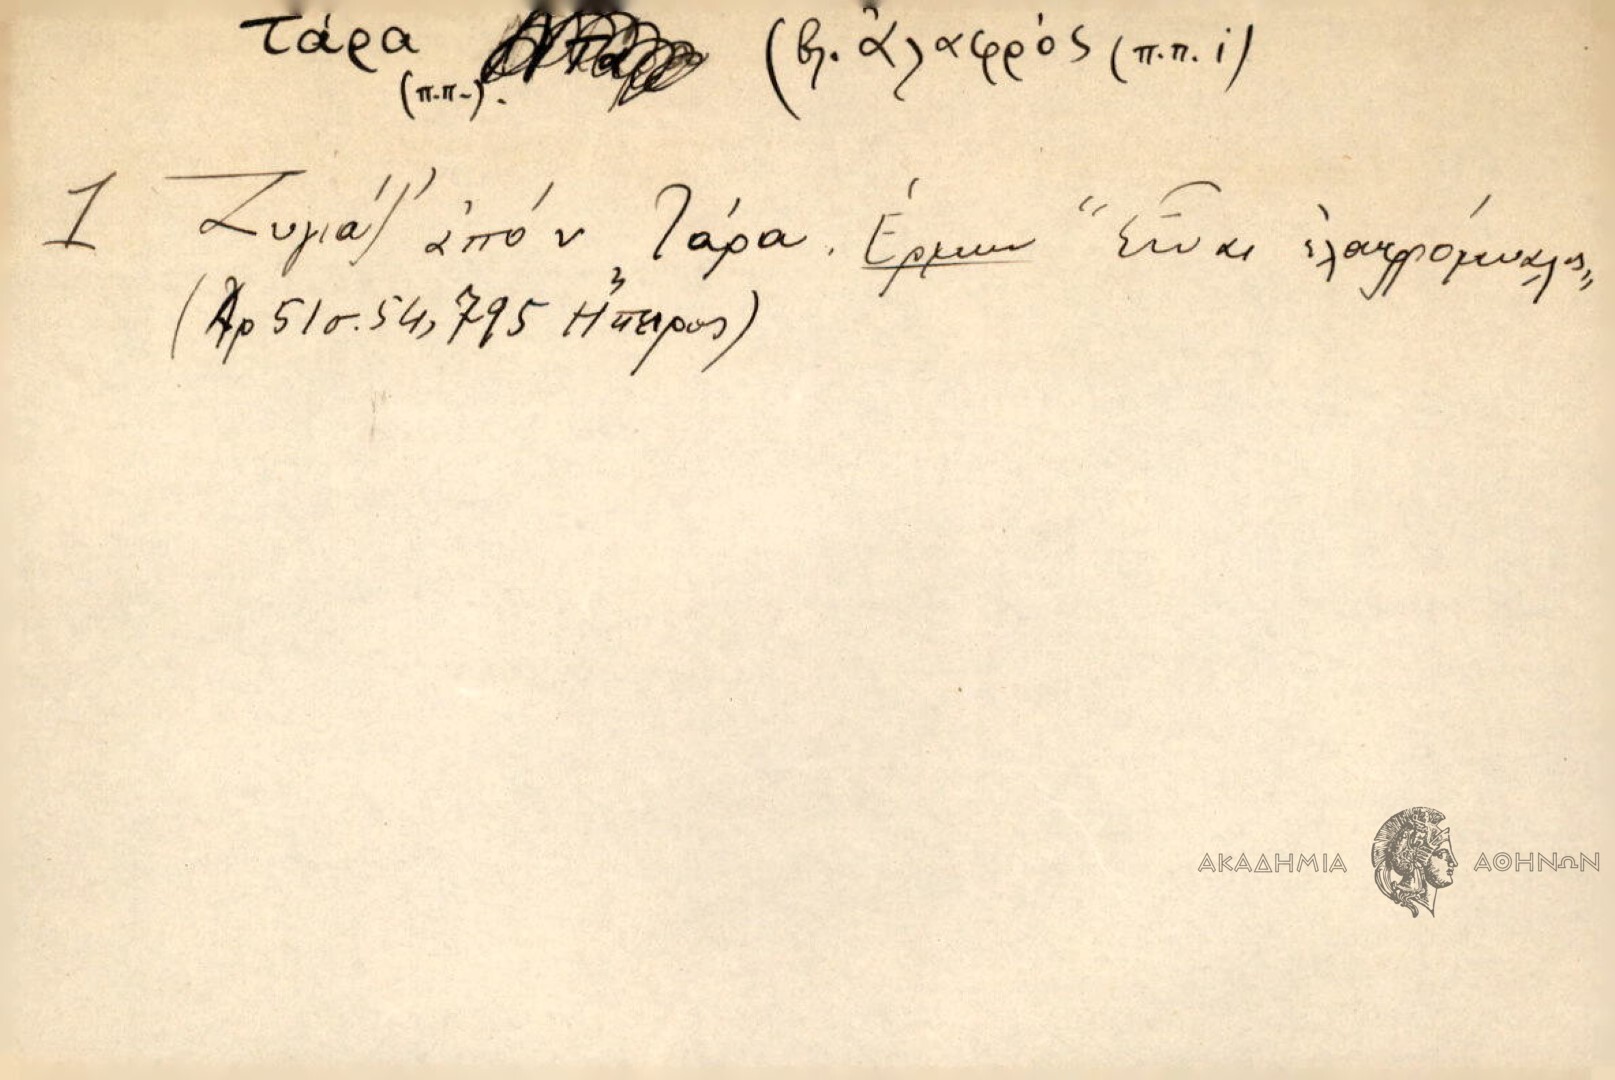 τάρα (βλ. ἀλαφρός (π.π. i)
(π.π.).
1 Ζυγιάζ' ἀπό ν Τάρα. Ἑρμην "Εἶναι ἐλαφρόμυαλος"
(Αρ 51 σ. 54, 795 Ἤπειρος)
ΑΚΑΔΗΜΙΑ ΑΘΗΝΩΝ